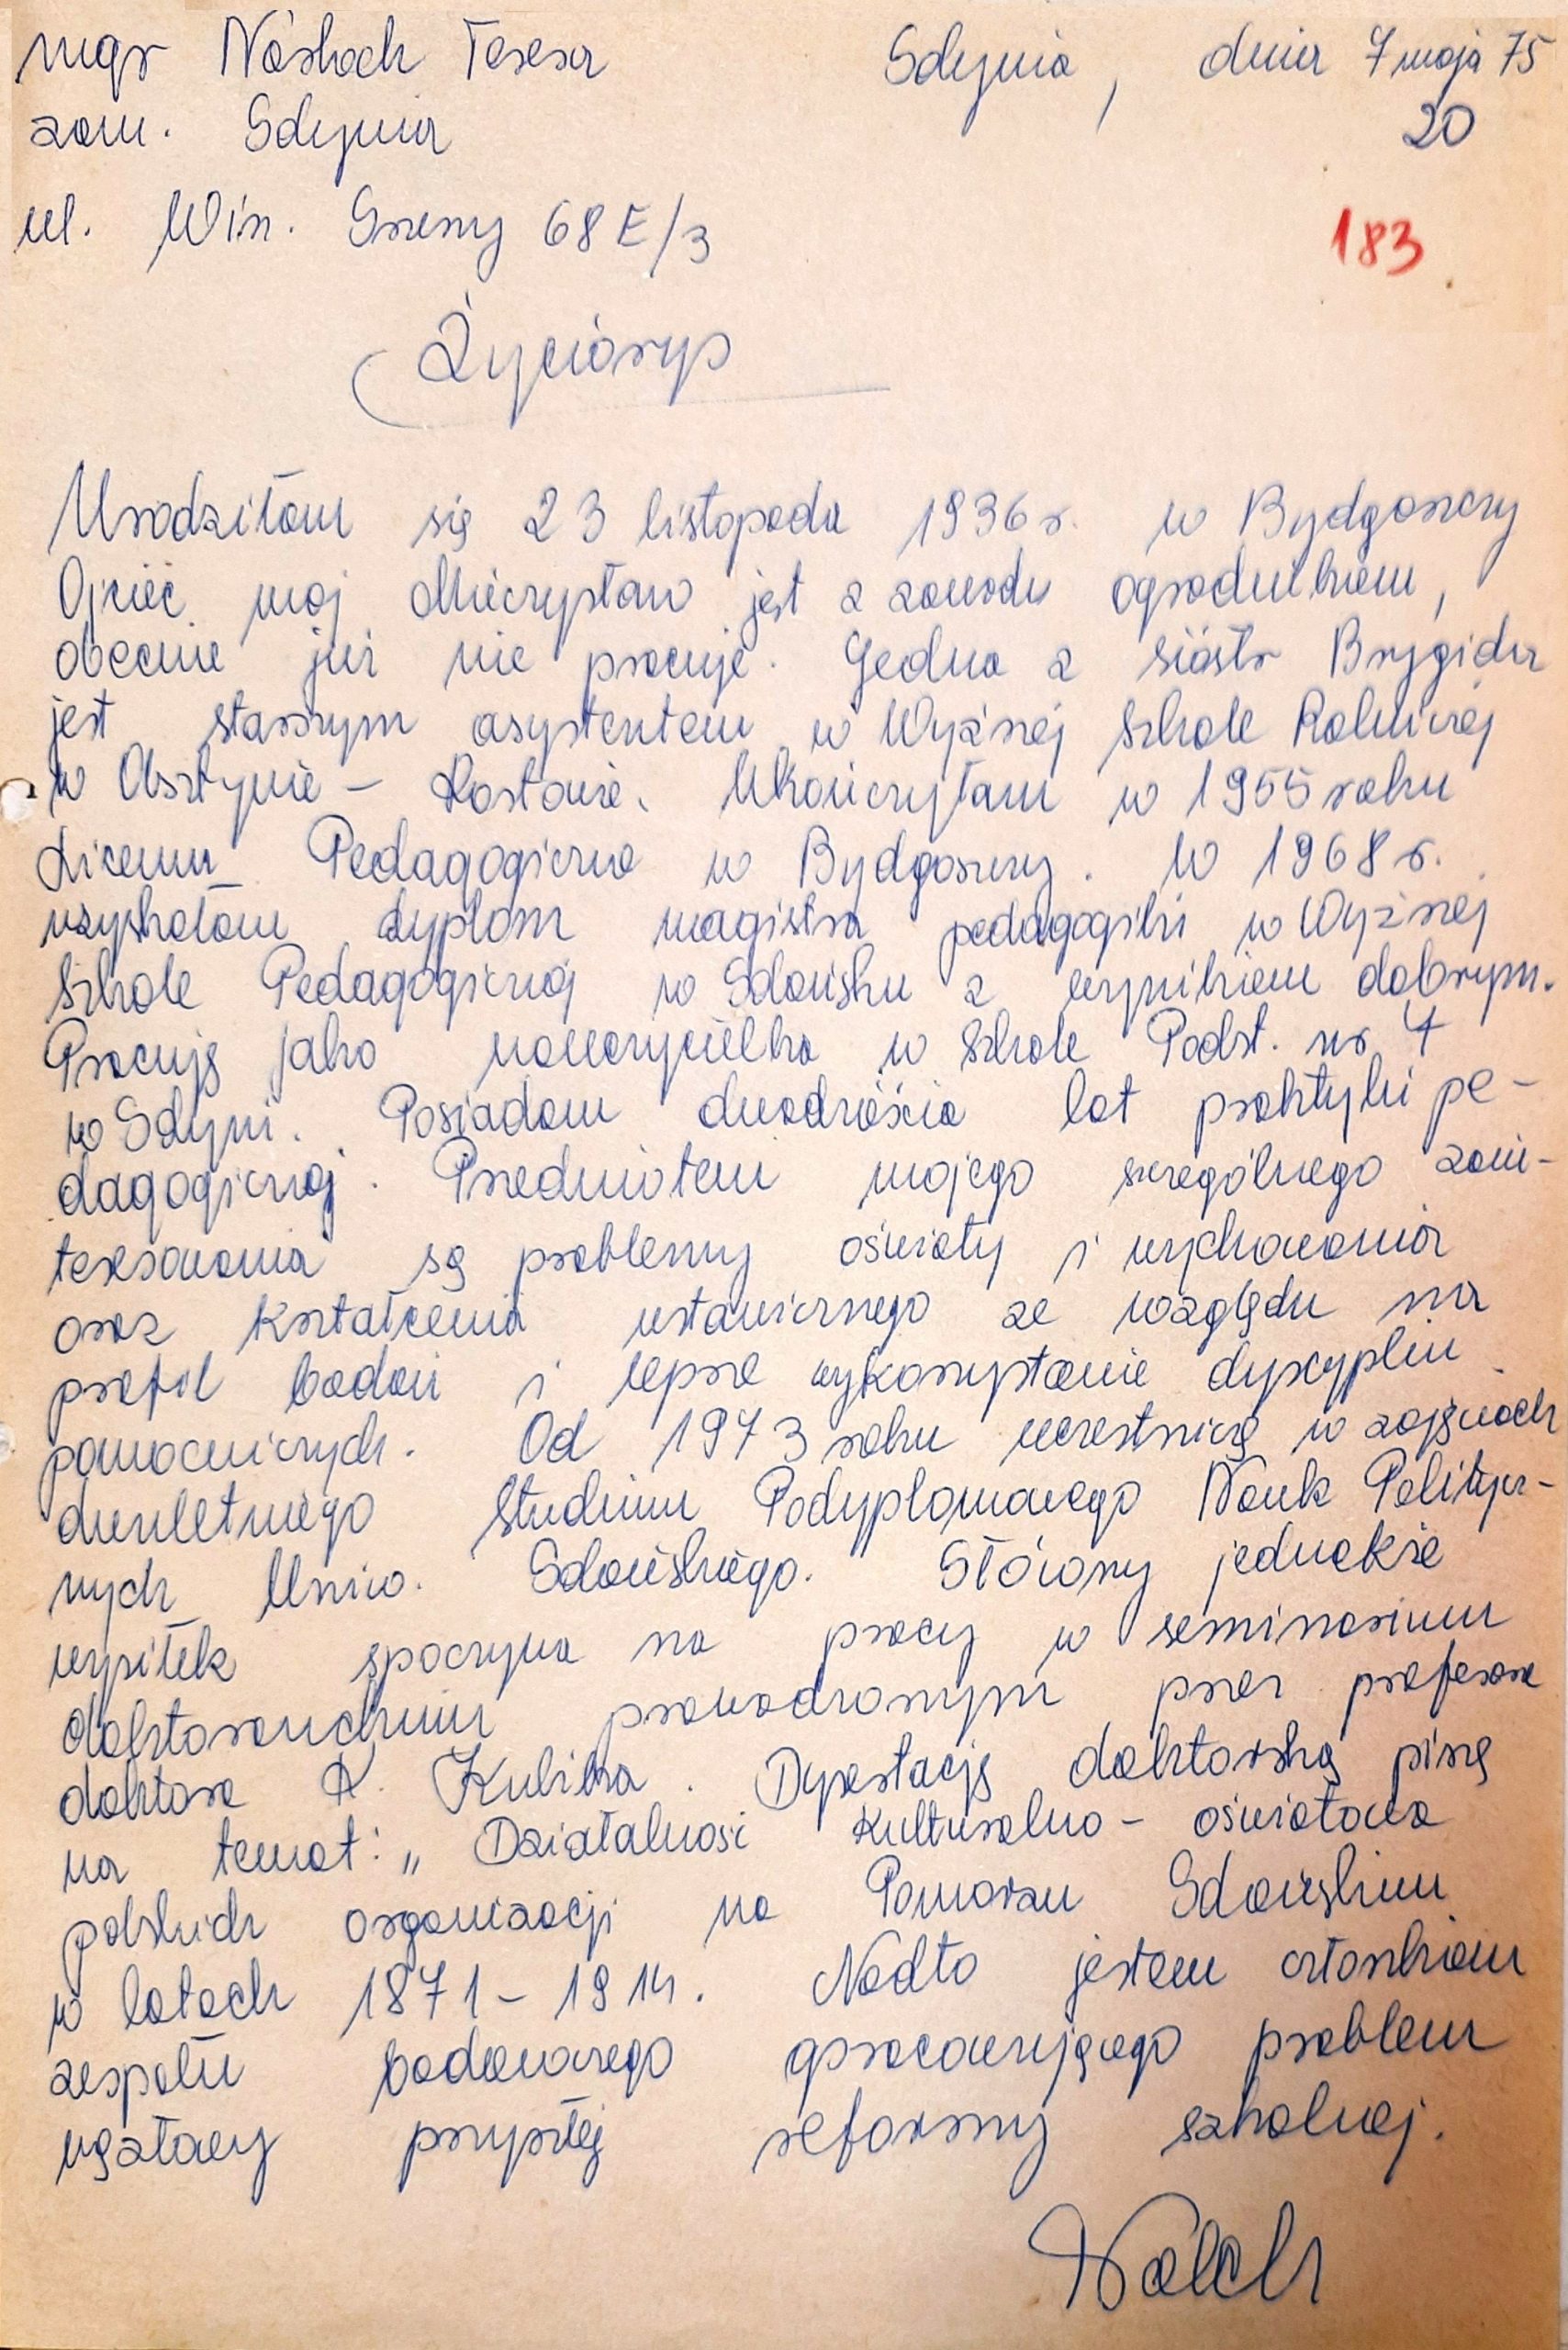 mgr Náskoch Teresa Gdynia, dnia 7 maja 75
zam. Gdynia 20
ul. Win. Gneny 68 E/3 183
Życiorys
Urodziłam się 23 listopada 1936 r. w Bydgoszczy
Ojciec mój Mieczysław jest z zawodu ogrodnikiem,
obecnie już nie pracuje. Jedna z sióstr Brygida
jest starszym asystentem w Wyższej Szkole Rolniczej
w Olsztynie - Kortowie. Ukończyłam w 1955 roku
Liceum Pedagogiczne w Bydgoszczy. W 1968 r.
uzyskałam dyplom magistra pedagogiki w Wyższej
Szkole Pedagogicznej w Gdańsku z wynikiem dobrym.
Pracuję jako nauczycielka w Szkole Podst. nr 4
w Gdyni. Posiadam dwadzieścia lat praktyki pe-
dagogicznej. Przedmiotem mojego szczególnego zain-
teresowania są problemy oświaty i wychowania
oraz kształcenia ustawicznego ze względu na
profil badań i lepsze wykorzystanie dyscyplin
pomocniczych. Od 1973 roku uczestniczę w zajęciach
dwuletniego Studium Podyplomowego Nauk Politycz-
nych Uniw. Gdańskiego. Główny jednakże
wysiłek spoczywa na pracy w seminarium
doktoranckim prowadzonym przez profesora
doktora K. Kubika. Dysertację doktorską piszę
na temat: „Działalność kulturalno - oświatowa
polskich organizacji na Pomorzu Gdańskim
w latach 1871 - 1914. Nadto jestem członkiem
zespołu badawczego opracowującego problem
wgzłowy przyszłej reformy szkolnej.